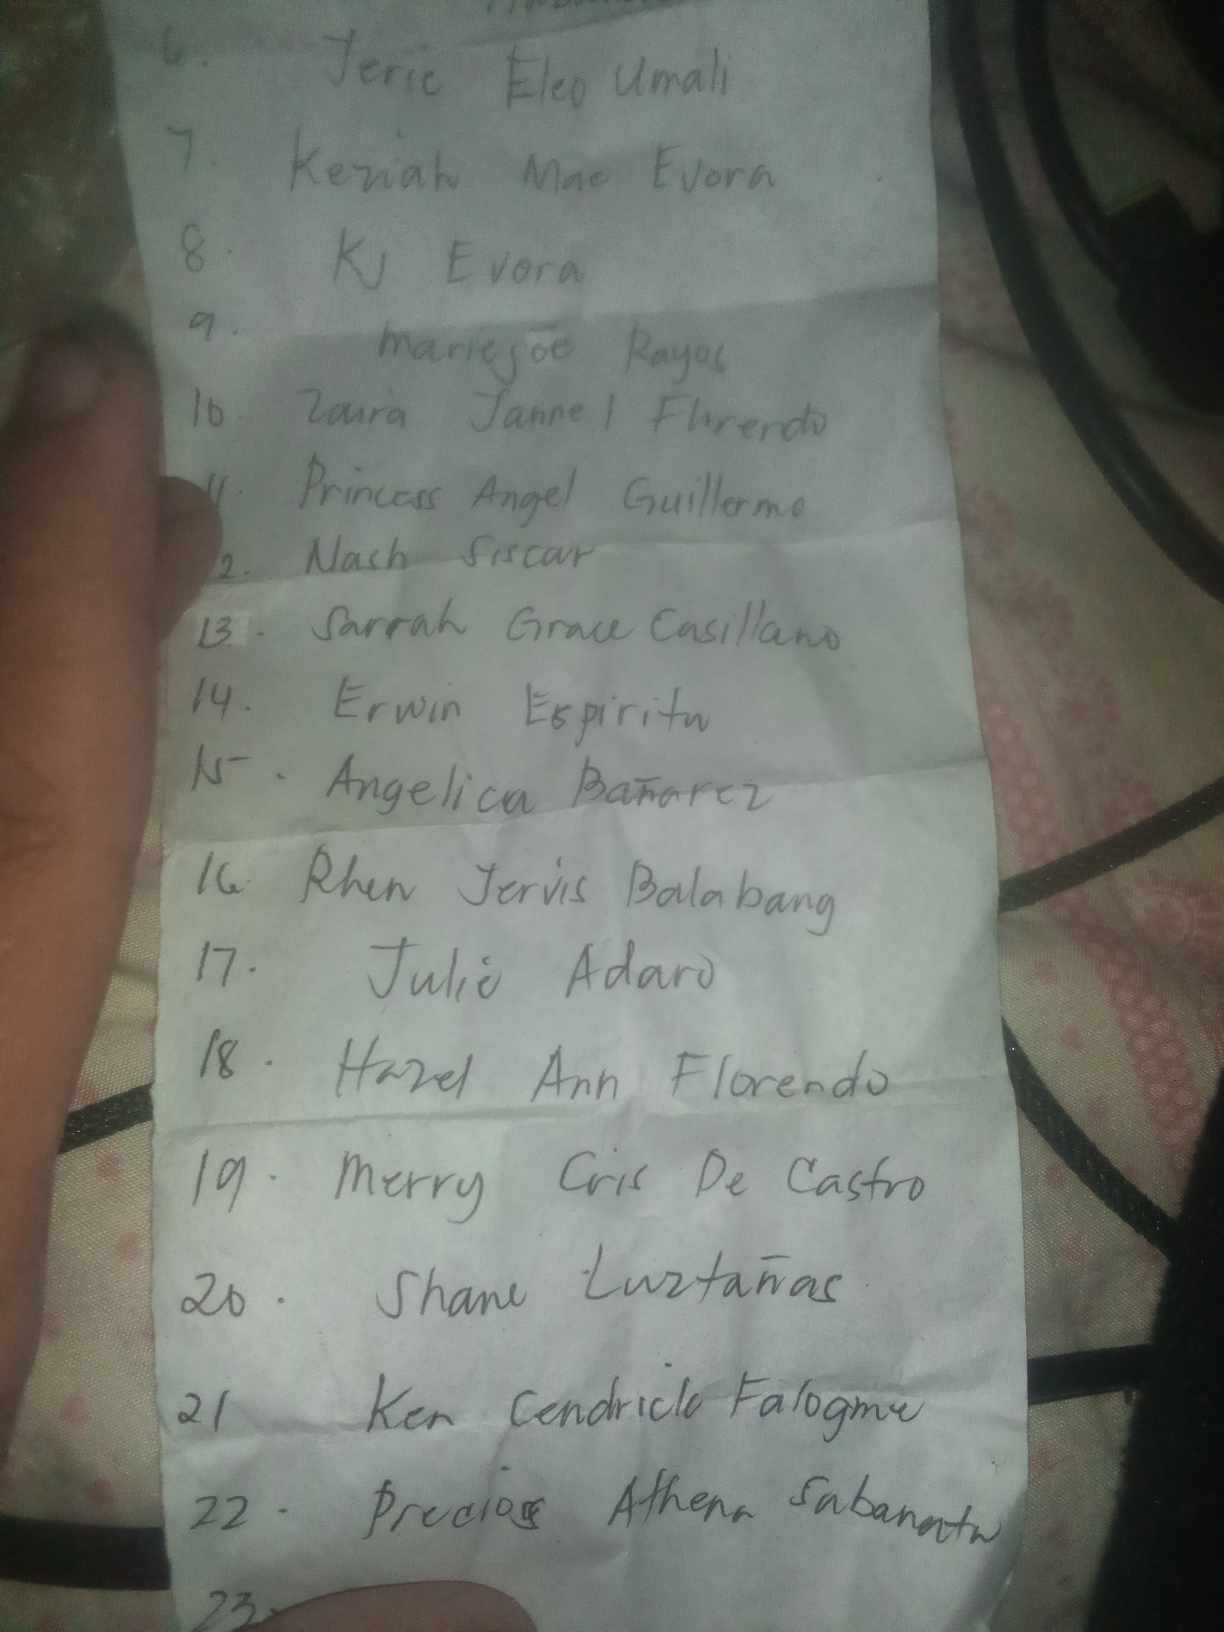 6. Jeric Eleo Umali
7. Keziah Mae Evora
8. KJ Evora
9. mariejoe Rayos
10. Zaira Jannel Florendo
11. Princess Angel Guillermo
12. Nash Siscar
13. Sarrah Grace Casillano
14. Erwin Espiritu
15. Angelica Bañarez
16. Rhen Jervis Balabang
17. Julie Adaro
18. Hazel Ann Florendo
19. Merry Cris De Castro
20. Shane Luztañas
21 Ken Cendrick Falogme
22. Precious Athena Sabanata
23.